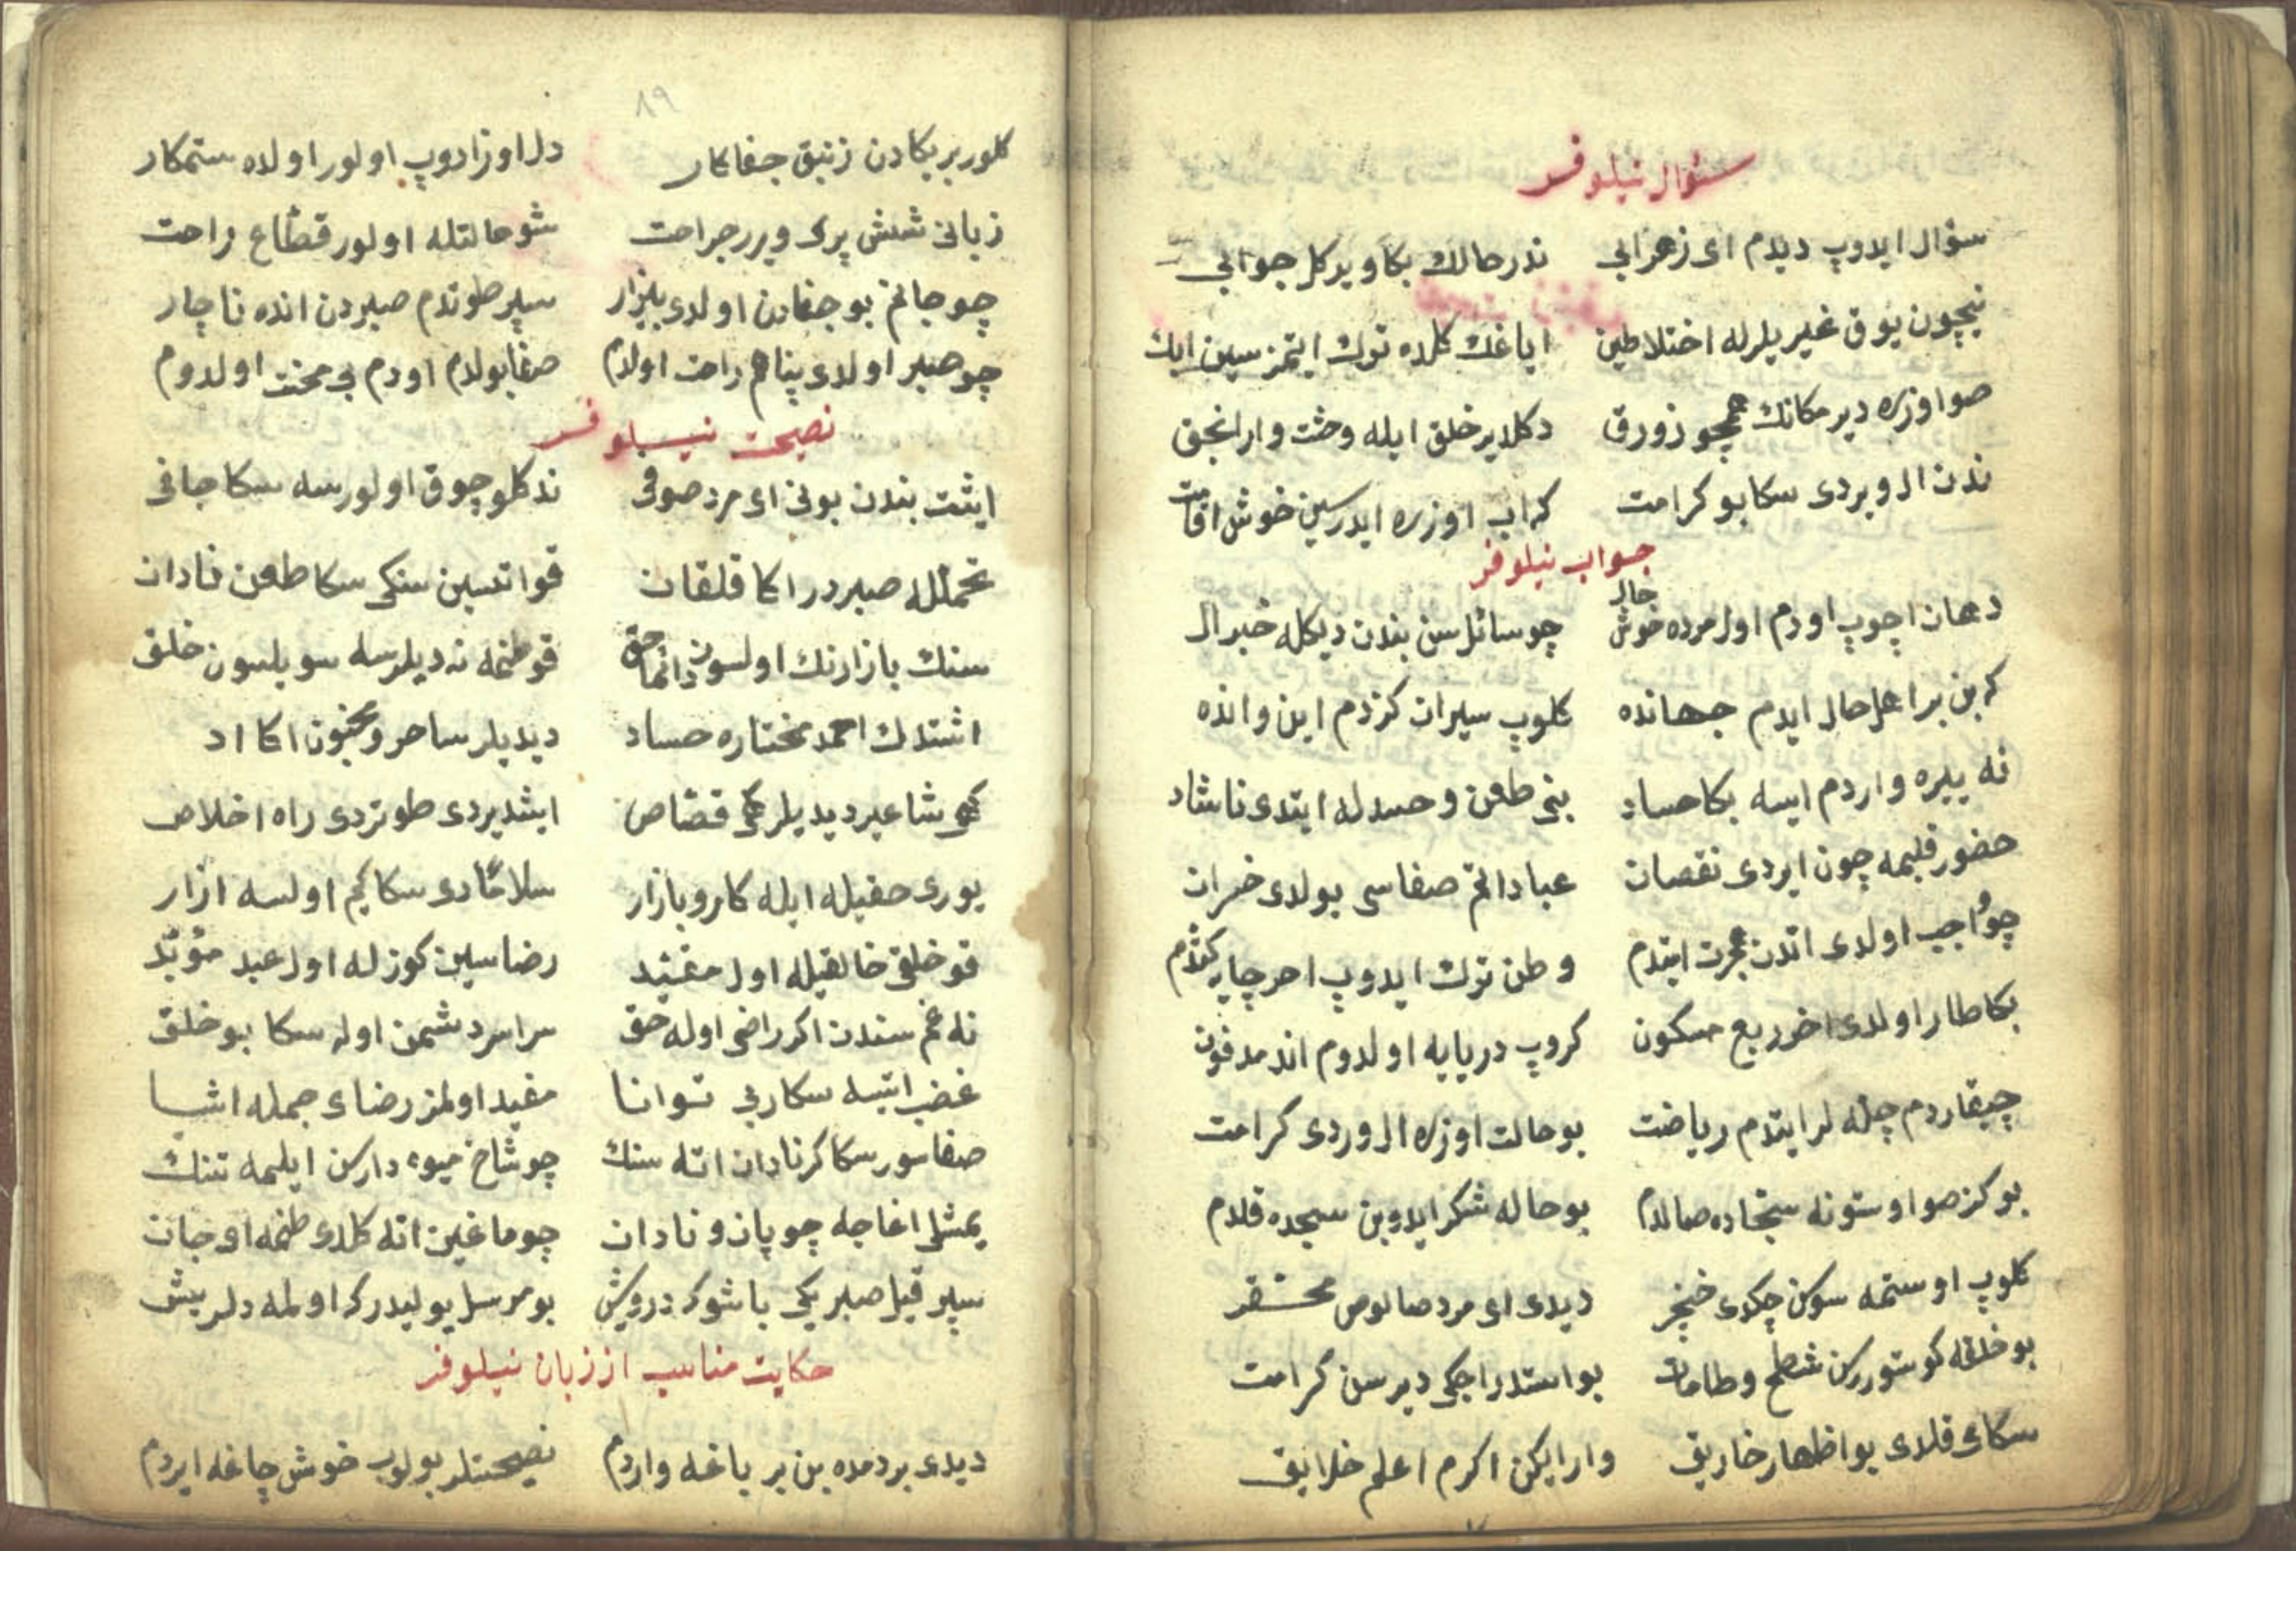 سؤال نیلوفر
سؤال ایدوپ دیدم ای زعزابی ندر حالك بکا ویرکل جوابی
نیچون یوق غیریلرله اختلاطین ایاغك کلده ترك ایتمزسین ایك
صو اوزره دیر مکانك همچو زورق دکلا یر خلق ایله وحثت وار انجق
ندن ال ویردی سکا بو کرامت که اب اوزره ایدرسین خوش اقامت
جواب نیلوفر
دهان اچوپ اودم اول مرده خوش حال چو سائل سن بندن دیکله خبر ال
که بن بر اهل حال ایدم جهانده کلوپ سیران کزدم این و انده
نه ییره واردم ایسه بکا حساد بنی طعن و حسدله ایتدی ناشاد
حضور قلبمه چون ایردی نقصان عباداتم صفاسی بولدی خسران
چو واجب اولدی اندن هجرت ایتدم وطن ترك ایدوپ اخر چار کتدم
بکا طار اولدی اخر ربع مسکون کروپ دریایه اولدوم انده مدفون
چیقاردم چلّه لر ایتدم ریاضت بو حالت اوزره ال وردی کرامت
بو کز صو اوستونه سجّاده صالدم بو حاله شکر ایدوبن سجده قلدم
کلوپ اوستمه سوکن چکدی خنجر دیدی ای مرد صالوص محقّر
بو خلقه کوستوررکن شطح و طامات بو استدراجکی دیرسن کرامت
سکامی قلدی بو اظهار خاریق وار ایکن اکرم اعلم خلایق
٨٩
کلور بر یکادن زنبق جفاکار دل اوزادوپ اولور اولده ستمکار
زبانی شش پرك ویرر جراحت شو حالتله اولور قطّاع راحت
چو جانم بو جفادن اولدی بیزار سپر طوتدم صبردن انده ناچار
چو صبر اولدی پناهم راحت اولدم صفا بولدم اودم بی محنت اولدوم
نصیحت نیلوفر
ایشت بندن بونی ای مرد صوفی ندکلو چوق اولورسه سکا جافی
تحمّلله صبردر اکا قلقان قو اتسین سنکی سکا طعن نادان
سنك بازارنك اولسون دائما حق قو طعنه نه دیلرسه سویلسون خلق
اشتدك احمد مختاره حساد دیدیلر ساحر و مجنون اکا اد
کمی شاعر دیدیلر کمی قصّاص ایشدیردی طوتردی راه اخلاص
یوری حقیله ایله کار و بازار سلامادی سکا کم اولسه ازار
قو خلقی خالقیله اول مقیّد رضاسین کوزله اول عبد مؤیّد
نه غم سندن اکر راضی اوله حق سراسر دشمن اوله سکا بو خلق
غضب ایتسه سکا ربی توانا مفید اولمز رضای جمله اشیا
صفا سور سکا کر نادان اته سنك چو شاخ میوه دارکن ایلمه تنك
یمشلی اغاجه چوپان و نادان چوماغین اته کلدی طعنه ای جان
سپر قیل صبریکی باشوکه درویش بو مرسل یولیدر که اولمه دلریش
حکایت مناسب از زبان نیلوفر
دیدی بردمده بن بر باغه واردم نصیحتلر بولوب خوش چاغه ایردم